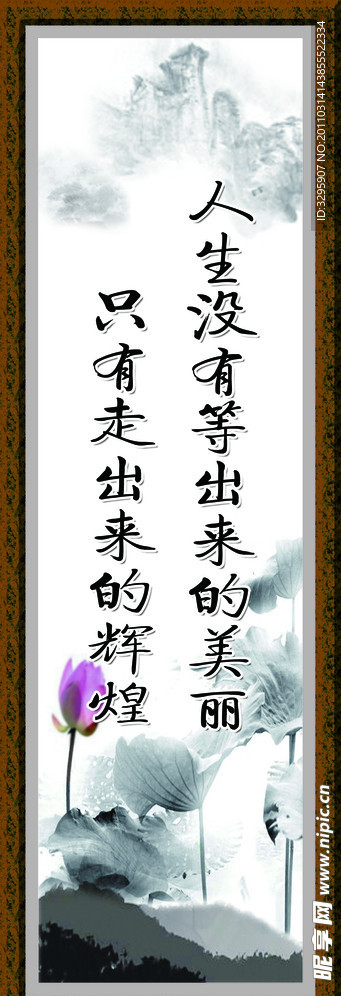 人生没有等出来的美丽
只有走出来的辉煌
ID:3295907 NO:20110314143855522334
昵享网 www.nipic.cn